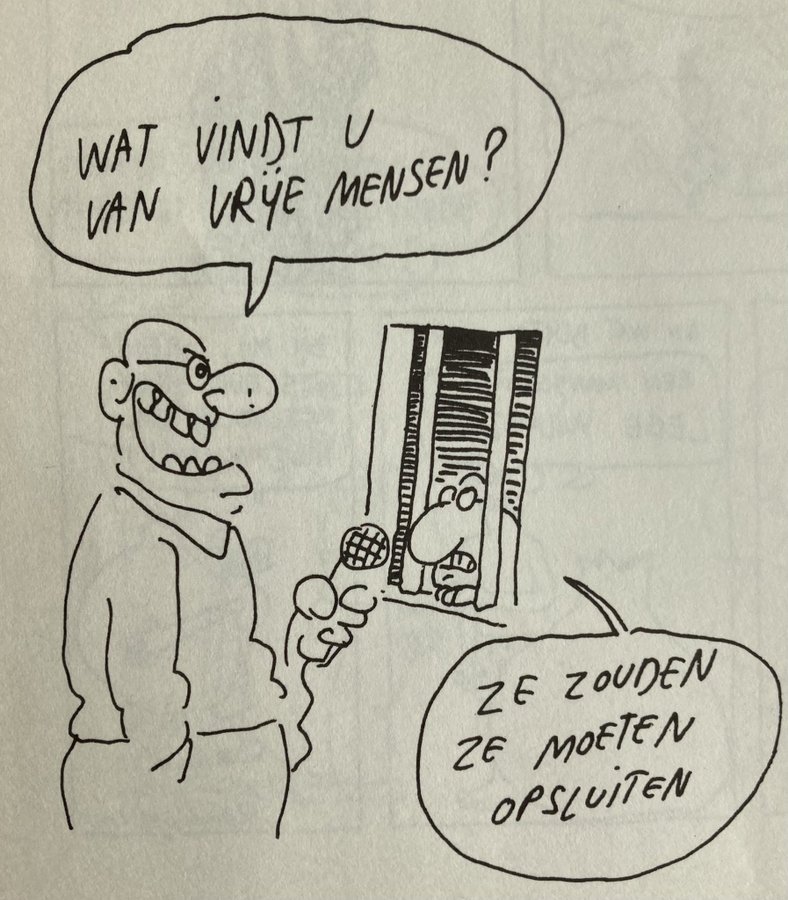 WAT VINDT U
VAN VRIJE MENSEN?
ZE ZOUDEN
ZE MOETEN
OPSLUITEN